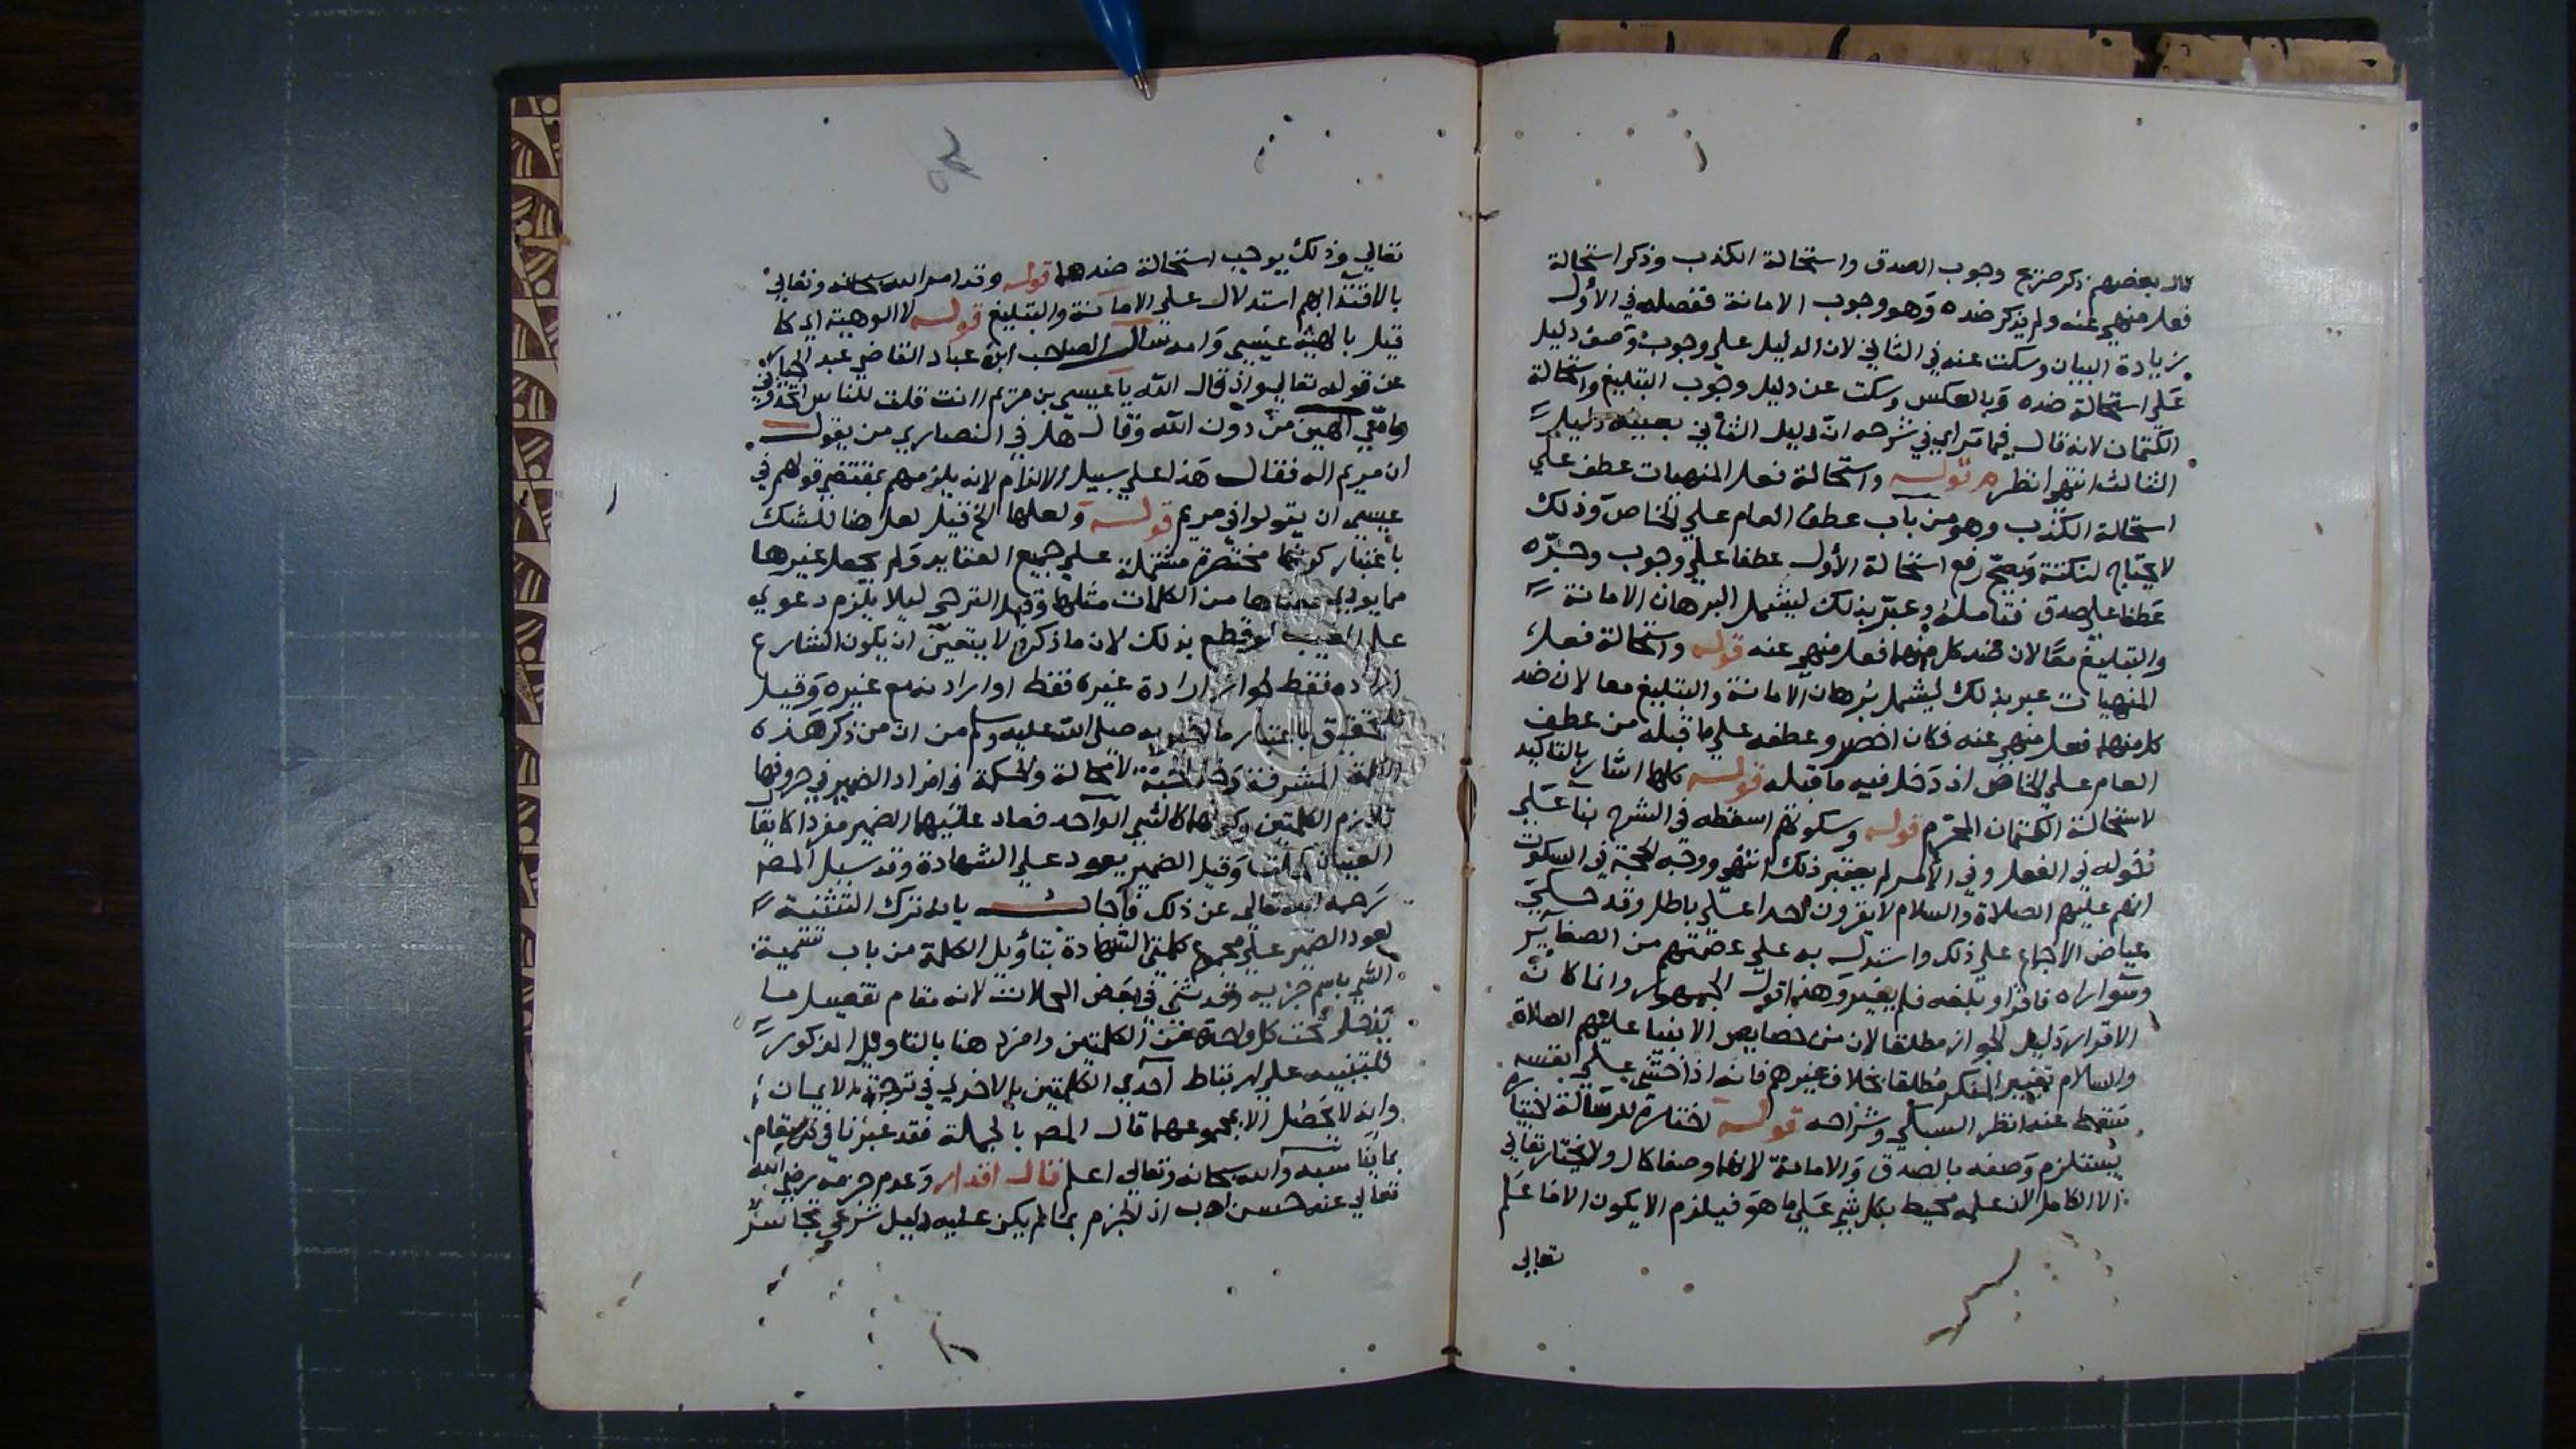 قال بعضهم ذكر صريح وجوب الصدق واستحالة الكذب وذكر استحالة
فعل منهي عنه ولم يذكر ضده وهو وجوب الامانة ففصله في الأول
زيادة البيان وسكت عنه في الثاني لان الدليل علي وجوب وصف دليل
علي استحالة ضده وبالعكس وسكت عن دليل وجوب التبليغ واستحالة
الكتمان لانه قال فيما تراي في شرحه ان دليل الثاني بعينه دليل
الثالث انتهي انظره قوله واستحالة فعل المنهيات عطف علي
استحالة الكذب وهو من باب عطف العام علي الخاص وذلك
لا يحتاج لنكتة ويصح رفع استحالة الأول عطفا علي وجوب وجره
عطفا علي صدق فتامله وعبر بذلك ليشمل البرهان الامانة
والتبليغ معا لان ضد كل منهما فعل منهي عنه قوله واستحالة فعل
المنهيات عبر بذلك ليشمل برهان الامانة والتبليغ معا لان ضد
كل منهما فعل منهي عنه فكان اخصر وعطفه علي ما قبله من عطف
العام علي الخاص اذ دخل فيه ما قبله قوله كلها اشار بالتاكيد
لاستحالة الكتمان المحرم قوله وسكوتهم اسقطه في الشرح بنا علي
دخوله في الفعل وفي الأمر لم يعتبر ذلك انتهي ووجه الحجة في السكوت
انهم عليهم الصلاة والسلام لا يقرون احدا علي باطل وقد حكي
عياض الاجماع علي ذلك واستدل به علي عصمتهم من الصغاير
الاقرار دليل الجواز مطلقا لان من خصايص الانبيا عليهم الصلاة
والسلام تغيير المنكر مطلقا بخلاف غيرهم فانه اذا خشي علي نفسه
سقط عنه انظر السبكي وشراحه قوله اختاره للرسالة اختياره
يستلزم وصفه بالصدق والامانة لانهما وصفا كمال ولا يختار تعالي
الا الكامل لان علمه محيط بكل شي علي ما هو فيلزم الا يكون الا ما علم
تعالي
تعالي وذلك يوجب استحالة ضدهما قوله وقد امر الله سبحانه وتعالي
بالاقتدا بهم استدلال علي الامانة والتبليغ قوله لا الوهية اي كما
قيل بالهية عيسي وامه سال الصاحب ابن عباد القاضي عبد الجبار
عن قوله تعالي واذ قال الله يا عيسي بن مريم اانت قلت للناس اتخذوني
وامي الهين من دون الله وقال هل في النصاري من يقول
ان مريم اله فقال هذا علي سبيل الالزام لانه يلزمهم بمقتضي قولهم في
عيسي ان يقولوا في مريم قوله ولعلها الخ قيل لعل هنا للشك
باعتبار كونها مختصرة مشتملة علي جميع العقايد ولم يجعل غيرها
مما يودي معناها من الكلمات مثلها وقيل للترجي ليلا يلزم دعوي
علم الغيب لو قطع بذلك لان ما ذكره لا يتعين ان يكون الشارع
اراده فقط لجواز ارادة غيره فقط او اراده مع غيره وقيل
للتحقيق باعتبار ما اخبر به صلي الله عليه وسلم من ان من ذكر هذه
الكلمة المشرفة دخل الجنة لا محالة والحكمة في افراد الضمير في حروفها
تلازم الكلمتين وكونهما كالشي الواحد فعاد عليهما الضمير مفردا كما يقال
العينان كحلتا وقيل الضمير يعود علي الشهادة وقد سيل المص
رحمه الله تعالي عن ذلك فاجاب بانه ترك التثنية
لعود الضمير علي مجموع كلمتي الشهادة بتاويل الكلمة من باب تسمية
الشي باسم جزيه وقد ثني في بعض المحلات لانه مقام تفصيل ما
يدخل تحت كل واحدة من الكلمتين وافرد هنا بالتاويل المذكور
للتنبيه علي ارتباط احدي الكلمتين بالاخري في ترجمة الايمان
وانه لا يحصل الا بمجموعهما قال المص بالجملة فقد عبرنا في كل مقام
بما يناسبه والله سبحانه وتعالي اعلم قال اقدار وعدم جزمه رضي الله
تعالي عنه حسن ادب اذ الجزم بما لم يكن عليه دليل شرعي تجاسر